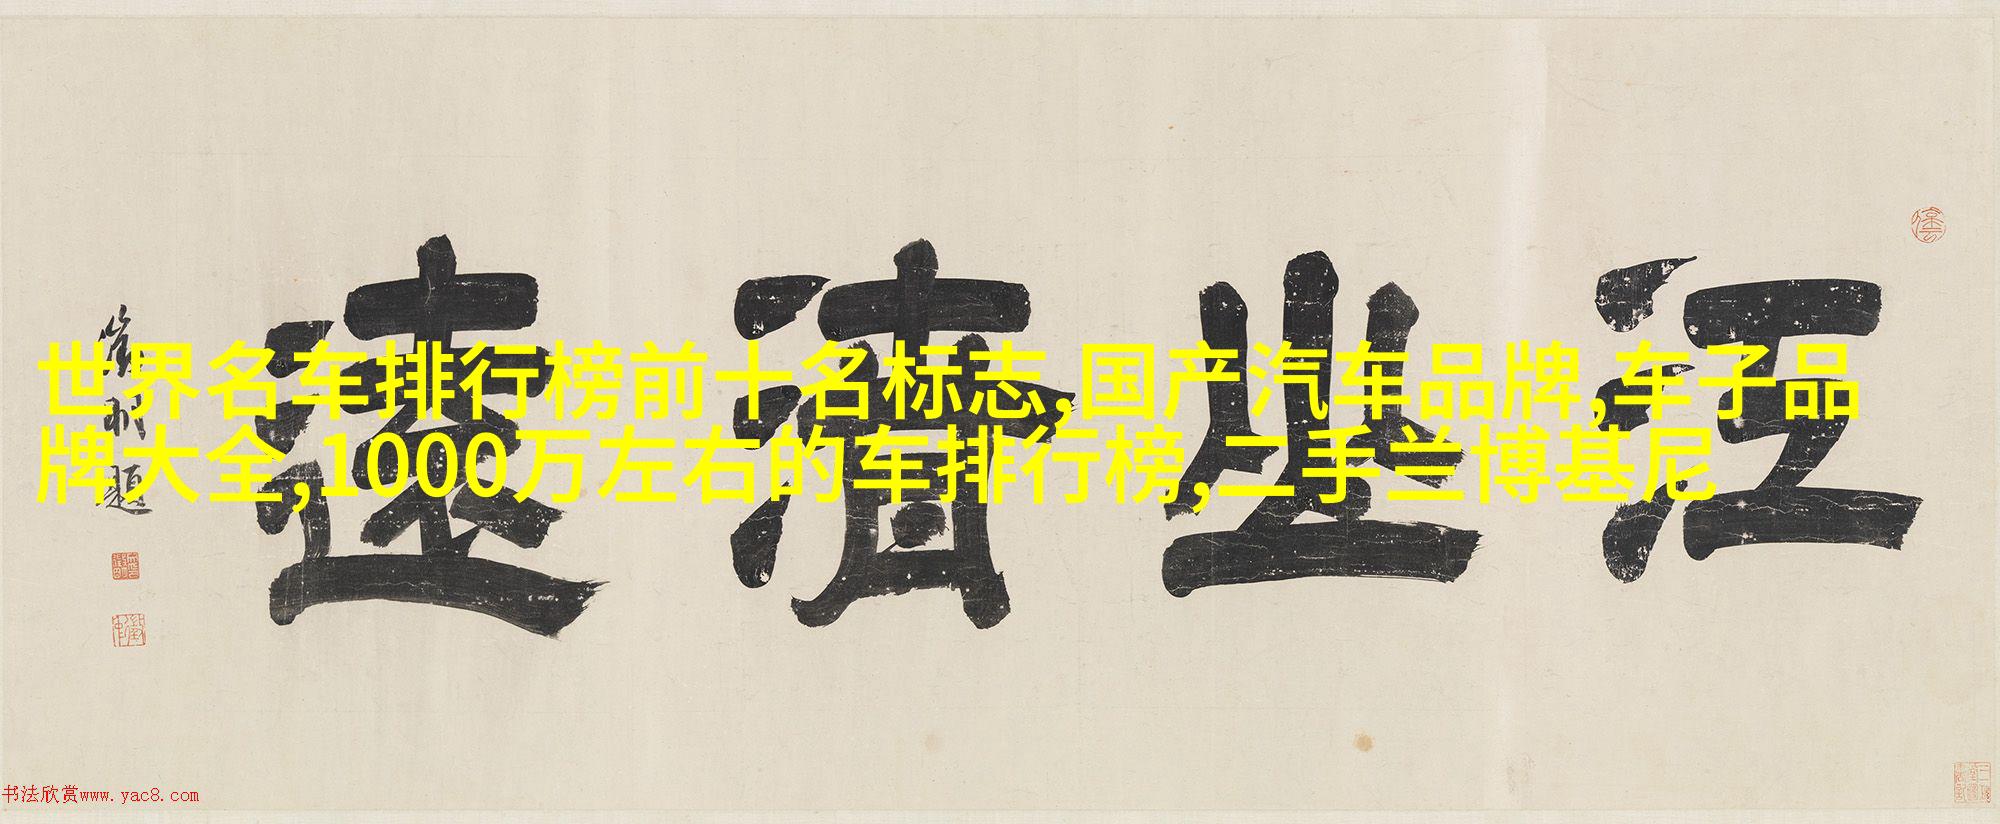 江山清遠
世界名车排行榜前十名标志,国产汽车品牌,车子品
牌大全,1000万左右的车排行榜,二手兰博基尼
題
书法欣赏www.yac8.com